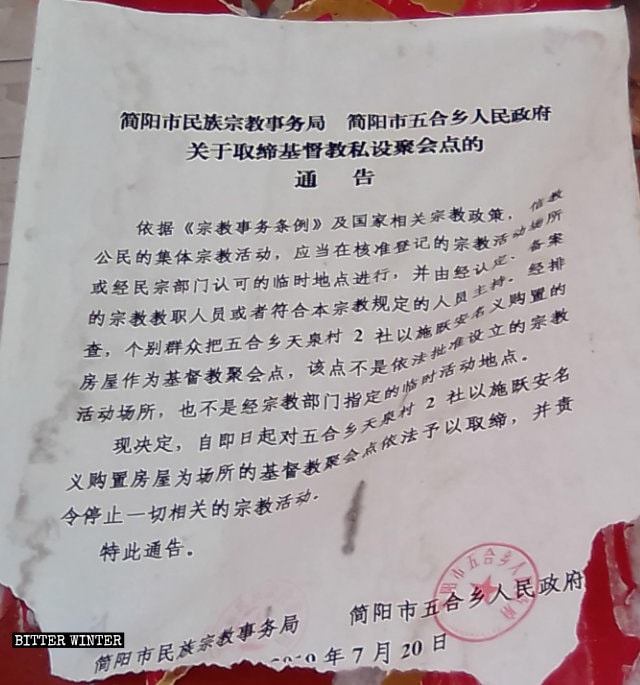 简阳市民族宗教事务局 简阳市五合乡人民政府
关于取缔基督教私设聚会点的
通 告
依据《宗教事务条例》及国家相关宗教政策，信教
公民的集体宗教活动，应当在核准登记的宗教活动场所
或经民宗部门认可的临时地点进行，并由经认定、备案
的宗教教职人员或者符合本宗教规定的人员主持。经排
查，个别群众把五合乡天泉村 2 社以施跃安名义购置的
房屋作为基督教聚会点，该点不是依法批准设立的宗教
活动场所，也不是经宗教部门指定的临时活动地点。
现决定，自即日起对五合乡天泉村 2 社以施跃安名
义购置房屋为场所的基督教聚会点依法予以取缔，并责
令停止一切相关的宗教活动。
特此通告。
简阳市民族宗教事务局 简阳市五合乡人民政府
年 7 月 20 日
BITTER WINTER